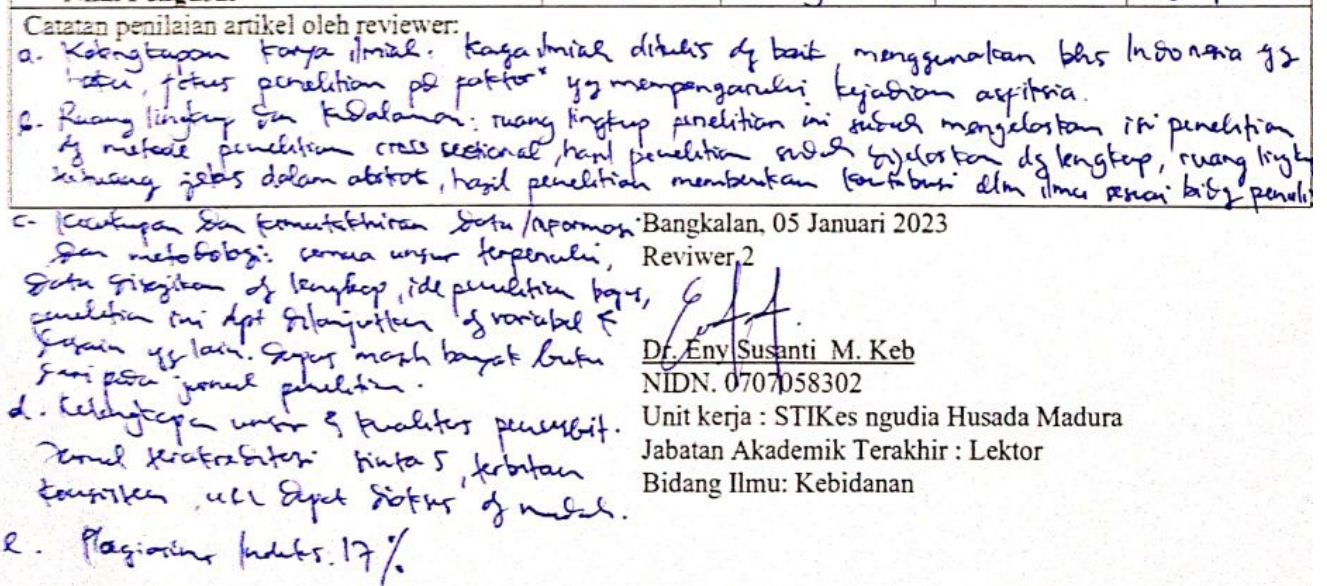 Catatan penilaian artikel oleh reviewer:
a. Kelengkapan karya ilmiah: karya ilmiah ditulis dg baik, menggunakan bhs Indonesia yg
fokus penelitian pd faktor² yg mempengaruhi kejadian asfiksia.
b. Ruang lingkup dan kedalaman: ruang lingkup penelitian ini sudah menjelaskan isi penelitian
dg metode penelitian cross sectional, hasil penelitian sudah dijelaskan dg lengkap, ruang lingk
jelas dalam abstrak, hasil penelitian memberikan kontribusi dlm ilmu sesuai bidg penuli
c. Kecukupan dan kemutakhiran data/informasi
dan metodologi: semua unsur terpenuhi,
data disajikan dg lengkap, ide penelitian bagus,
penelitian ini dpt dilanjutkan dg variabel &
desain yg lain. masih banyak buku
daripada jurnal penelitian.
d. Kelengkapan unsur & kualitas penerbit.
Jurnal terakreditasi sinta 5, terbitan
konsisten, url dapat diakses dg mudah.
e. Plagiasime Indeks. 17%
Bangkalan, 05 Januari 2023
Reviwer 2
Dr. Eny Susanti M. Keb
NIDN. 0707058302
Unit kerja : STIKes ngudia Husada Madura
Jabatan Akademik Terakhir : Lektor
Bidang Ilmu: Kebidanan